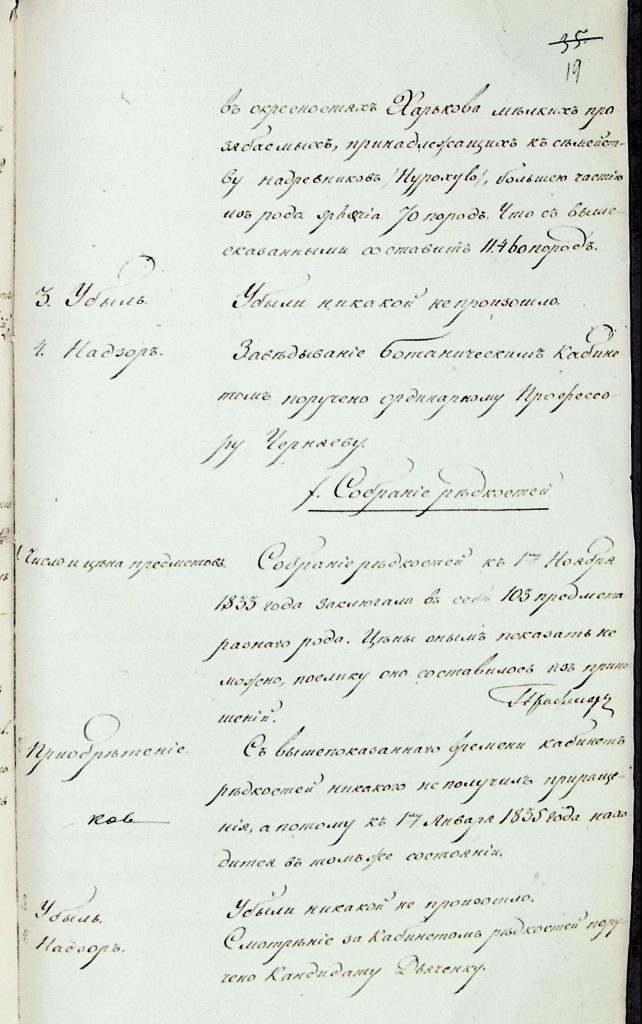 35.
19
въ окресностяхъ Харькова мѣлкихъ про
зябаемыхъ, принадлежащихъ къ сѣмейст-
ву надревниковъ большею частію
изъ рода 70 породъ. Что съ выше-
сказанными составитъ 11.460 породъ.
3. Убыль. Убыли никакой не произошло.
4. Надзоръ. Завѣдываніе Ботаническимъ Кабине-
томъ поручено ординарному Профессо-
ру Черняеву.
f. Собраніе рѣдкостей
1. Число и цѣна предметовъ. Собраніе рѣдкостей къ 1му Ноября
1833 года заключало въ себѣ 103 предмета
разнаго рода. Цѣны онымъ показать не
можно, поелику оно составилось изъ прино
шеній.
Приобрѣтеніе. Съ вышепоказаннаго времени кабинетъ
рѣдкостей никакого не получилъ прираще-
нія, а потому къ 1му Января 1835 года нахо
дится въ томъ же состояніи.
3. Убыль. Убыли никакой не произошло.
4. Надзоръ. Смотрѣніе за Кабинетомъ рѣдкостей пору-
чено Кандидату Дьяченку.